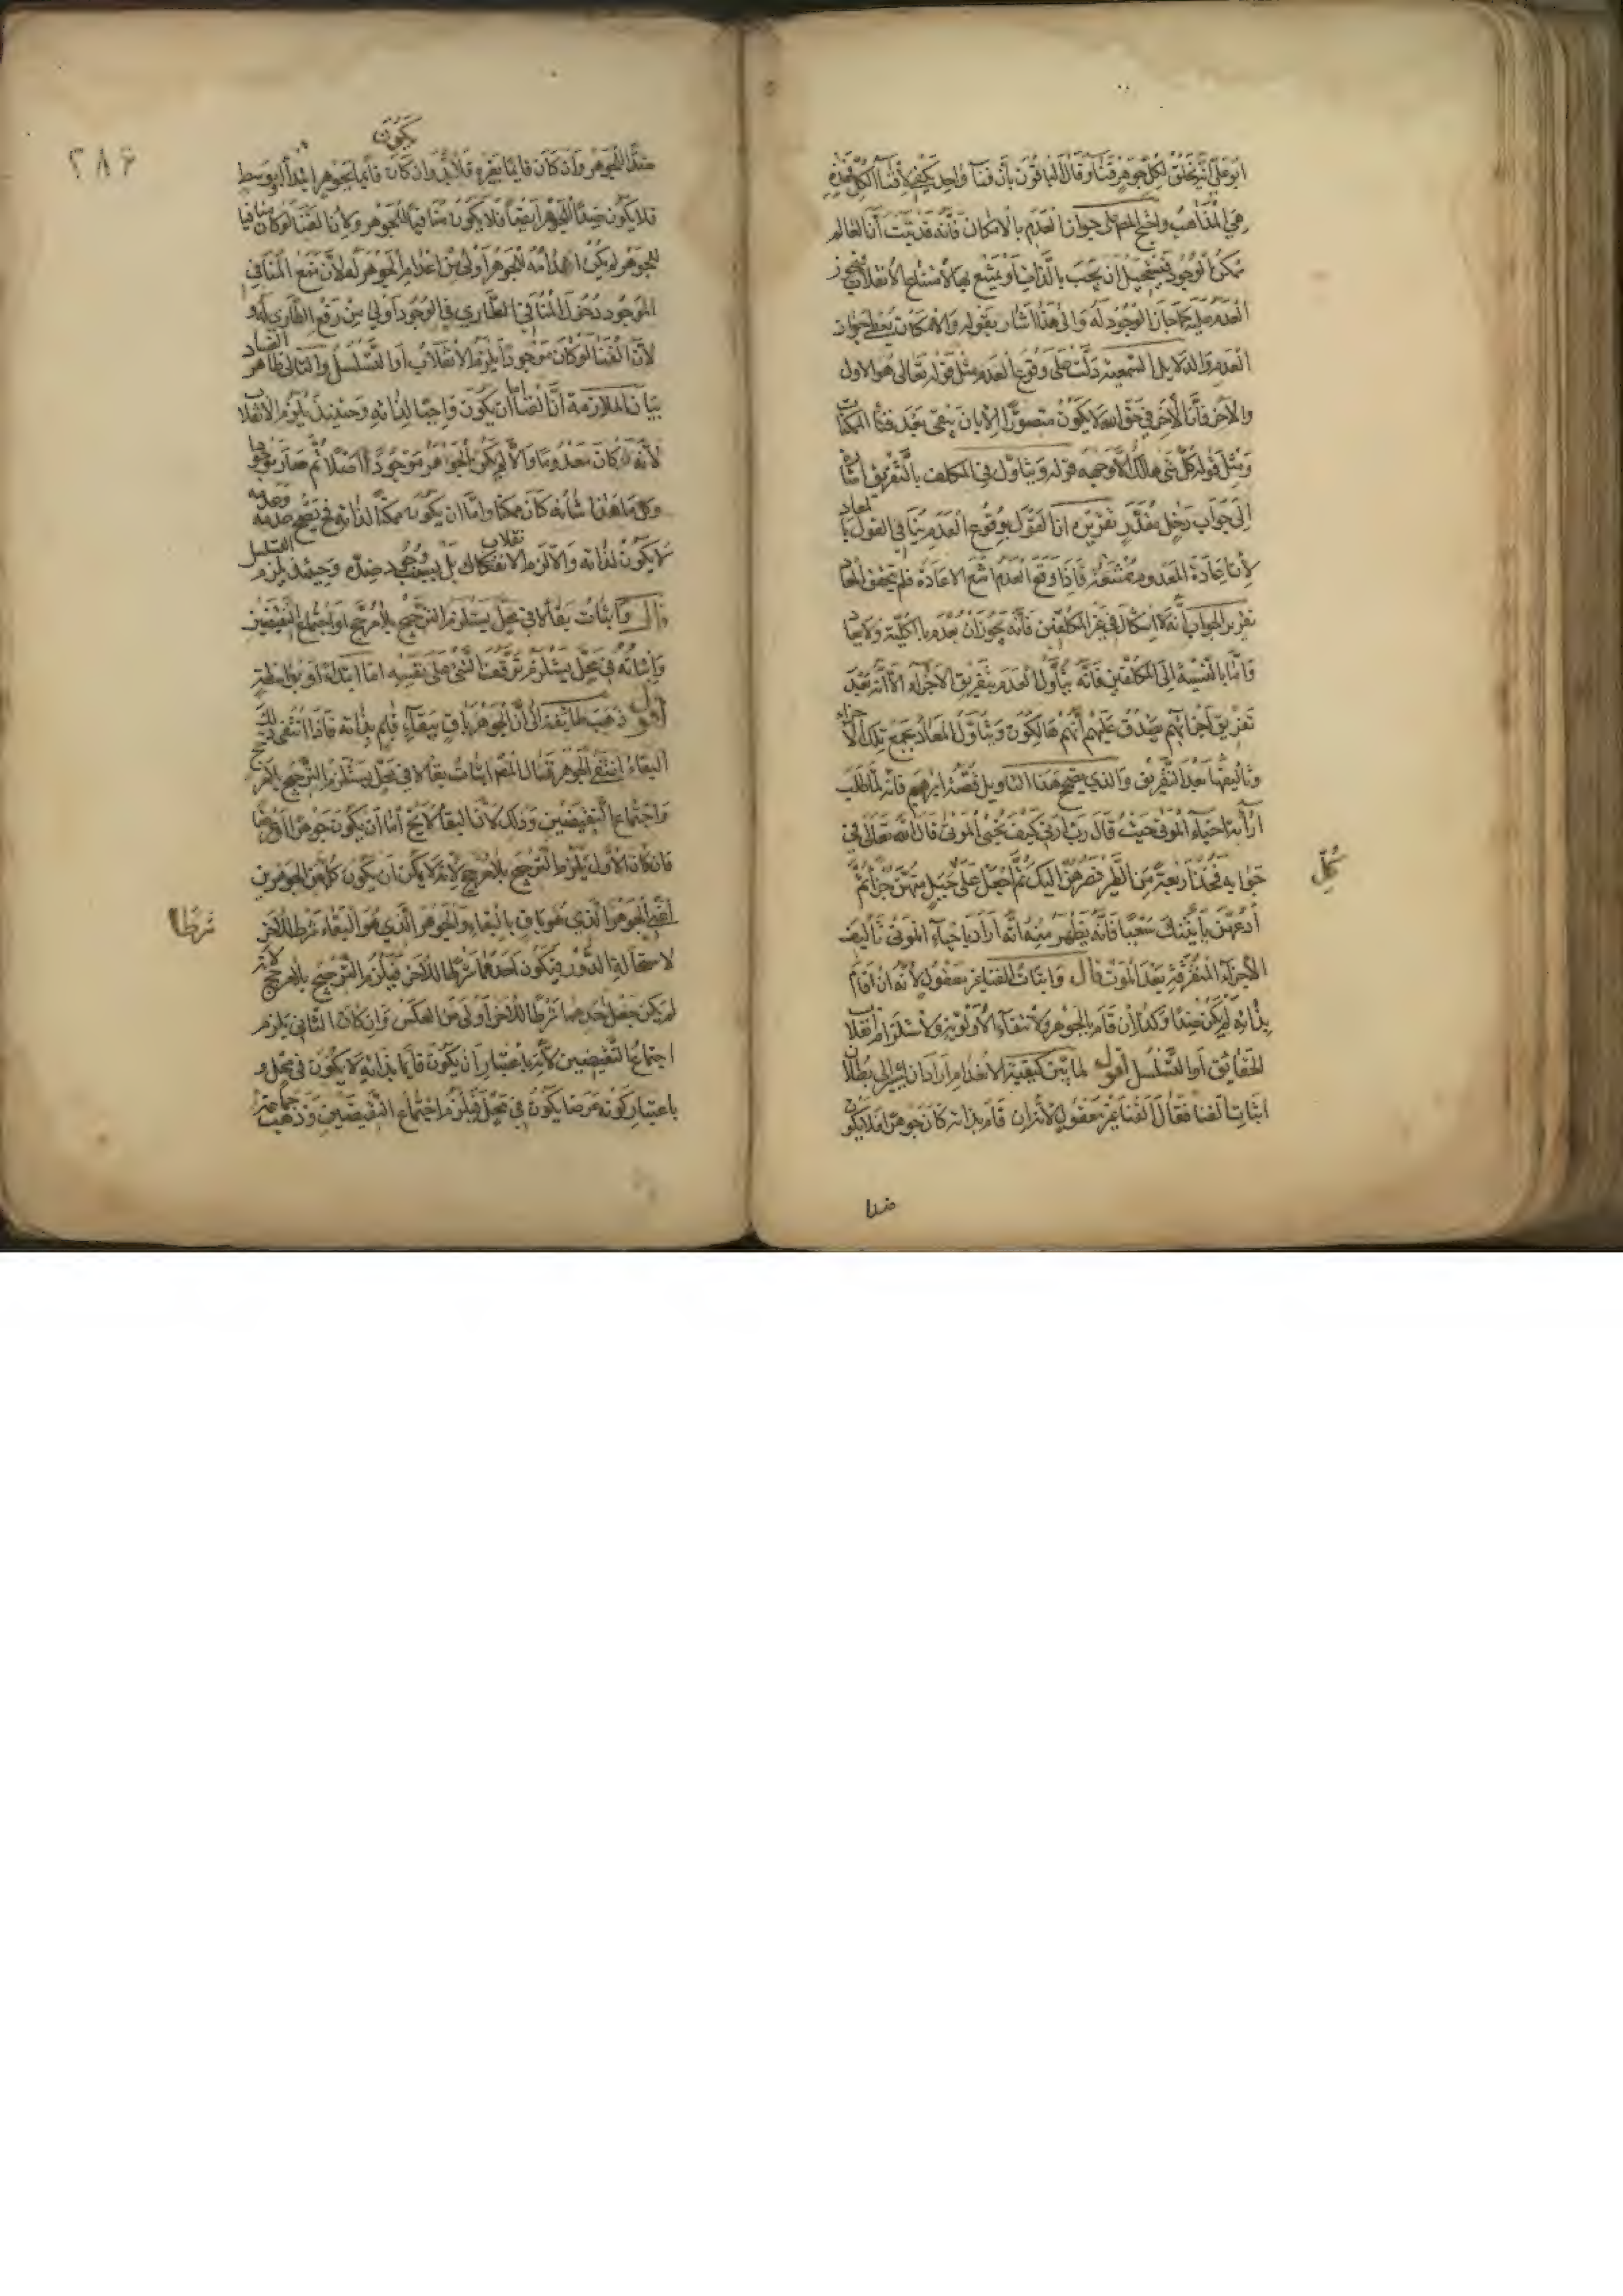 ابوعلي انه يخلق لكل جوهر فناء وقال الباقون بأن فناء واحد يكفي لافناء الكل فهذه
هي المذاهب واحتج المص على جواز العدم بالامكان فانه قد ثبت أن العالم
ممكن الوجود فيستحيل ان يجب بالذات أو يمتنع بها لامتناع الانقلاب فيجوز
العدم عليه كما جاز الوجود له والى هذا اشار بقوله والامكان يعطي جواز
العدم والدلايل السمعية دلت على وقوع العدم مثل قوله تعالى هو الاول
والآخر فان الآخر في حق الله لا يكون متصورا الا بان يبقى بعد فناء الممكنات
ومثل قوله كل شئ هالك الا وجهه قوله ويتاول في المكلف بالتفريق اشارة
الى جواب دخل مقدر تقريره ان القول بوقوع العدم ينافي القول بالمعاد
لان اعادة المعدوم ممتنعة فاذا وقع العدم امتنع الاعادة فلم يتحقق المعاد
تقرير الجواب أنه لا اشكال في غير المكلفين فانه يجوز ان يعدم بالكلية ولا يعاد
واما بالنسبة الى المكلفين فانه يتأول العدم بتفريق الاجزاء الا انه بعد
تفريق اجزائهم يصدق عليهم أنهم هالكون ويتاول المعاد بجمع تلك الاجزاء
وتاليفها بعد التفريق والذي يصحح هذا التاويل قصة ابرهيم فانه لما طلب
اراءة احياء الموتى حيث قال رب أرني كيف تحيى الموتى قال الله تعالى في
جوابه فخذ اربعة من الطير فصرهن اليك ثم اجعل على جبل منهن جزأ ثم
كل
ادعهن يأتينك سعيا فانه يظهر منه انه أراد باحياء الموتى تأليف
الاجزاء المتفرقة بعد الموت قال واثبات الفناء غير معقول لأنه ان قام
بذاته لم يكن ضدا وكذا ان قام بالجوهر ولانتفاء الأولوية ولاستلزام انقلاب
الحقائق أو التسلسل أقول لما بين كيفية الاعدام أراد ان يشير الى بطلان
اثبات الفنا فقال الفنا غير معقول لأنه ان قام بذاته كان جوهرا فلا يكون
ضدا
٢٨٤
يكون
ضدا للجوهر وان كان قايما بغيره فلابد وان كان قايما بجوهر ابتداء أو بوسط
فلا يكون ضدا للجوهر ايضا فلا يكون منافيا للجوهر ولان الفناء لو كان منافيا
للجوهر لم يكن اعدامه للجوهر أولى من اعدام الجوهر له لأن منع المنافي
الموجود دخول المنافي الطاري في الوجود أولى من رفع الطاري له و
لأن الفناء لو كان موجودا يلزم الانقلاب أو التسلسل والتالى ظاهر الفساد
بيان الملازمة أن الفناء اما ان يكون واجبا لذاته وحينئذ يلزم الانقلاب
لأنه كان معدوما والا لم يكن الجواهر موجودا اصلا ثم صار موجودا
وكل ما هذا شأنه كان ممكنا واما ان يكون ممكنا لذاته فح يصح عدمه وعدمه
لا يكون لذاته والا لزم الانقلاب بل بسبب وجود ضده وحينئذ يلزم التسلسل
قال واثبات بقاء لا في محل يستلزم الترجيح بلا مرجح او اجتماع النقيضين
واثباته في محل يستلزم توقف الشئ على نفسه اما ابتداء أو بواسطة
أقول ذهب طائفة الى أن الجوهر باق ببقاء قايم بذاته فاذا انتفى ذلك
البقاء انتفى الجوهر فقال المص اثبات بقاء لا في محل يستلزم الترجيح بلا مرجح
واجتماع النقيضين وذلك لان البقاء لا يخ اما أن يكون جوهرا او عرضا
فان كان الأول يلزم الترجيح بلا مرجح لانه لا يمكن ان يكون كل من الجوهرين
أعني الجوهر الذي هو باق بالبقاء والجوهر الذي هو البقاء شرطا للاخر
شرطا
لاستحالة الدور فيكون احدهما شرطا للآخر فيلزم الترجيح بلا مرجح لانه
لم يكن جعل احدهما شرطا للآخر أولى من العكس وان كان الثاني يلزم
اجتماع النقيضين لأنه باعتبار أن يكون قايما بذاته لا يكون في محل و
باعتبار كونه عرضا يكون في محل فيلزم اجتماع النقيضين وذهبت جماعة